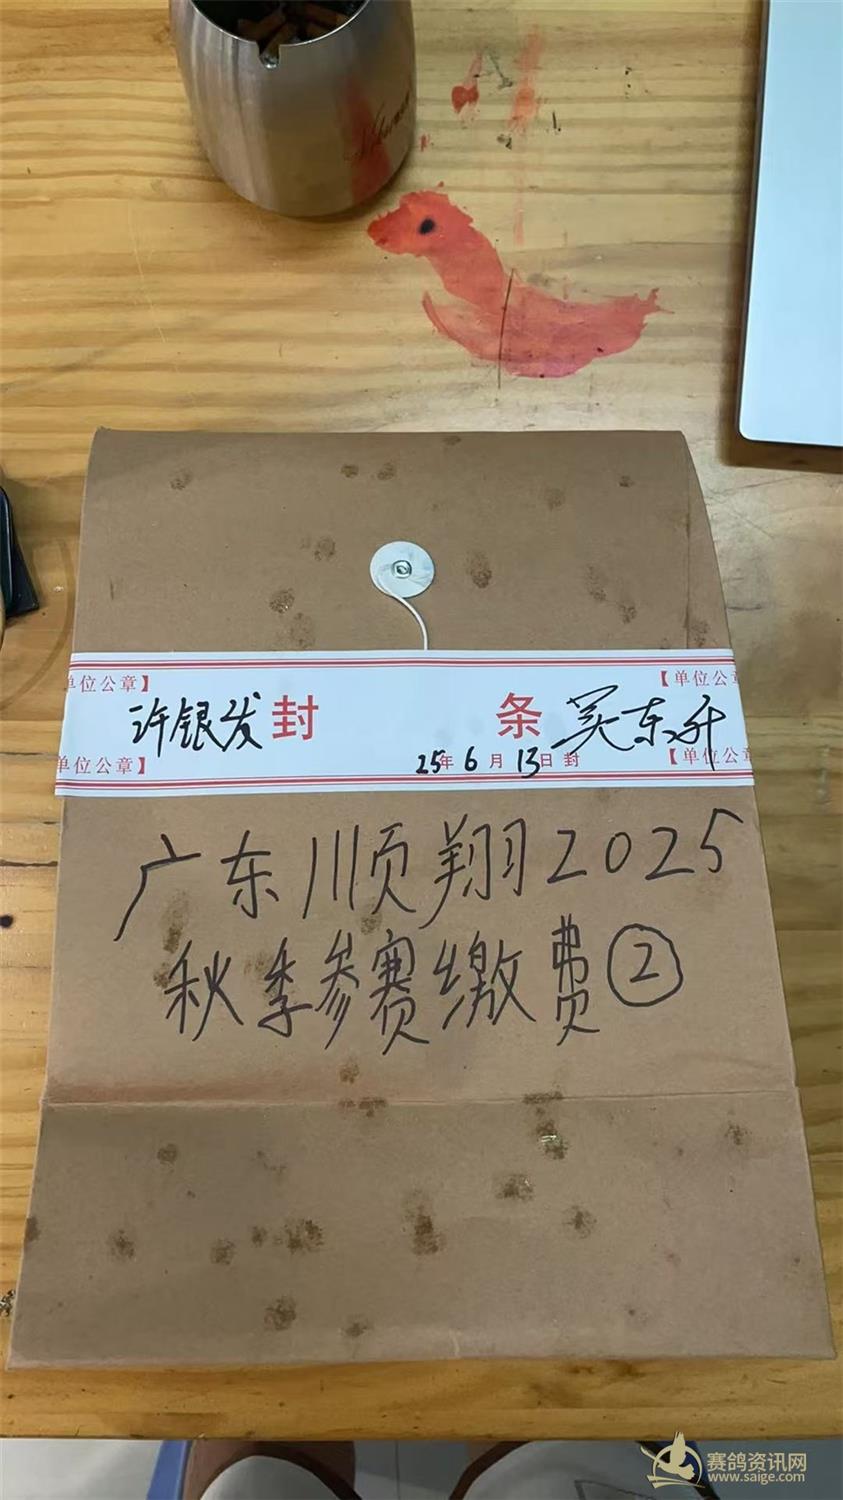 单位公章】
【单位公章
许银发
封
条
关东升
25年6月13日封
单位公章】
【单位公章
广东顺翔2025
秋季参赛缴费②
赛鸽资讯网
www.saige.com